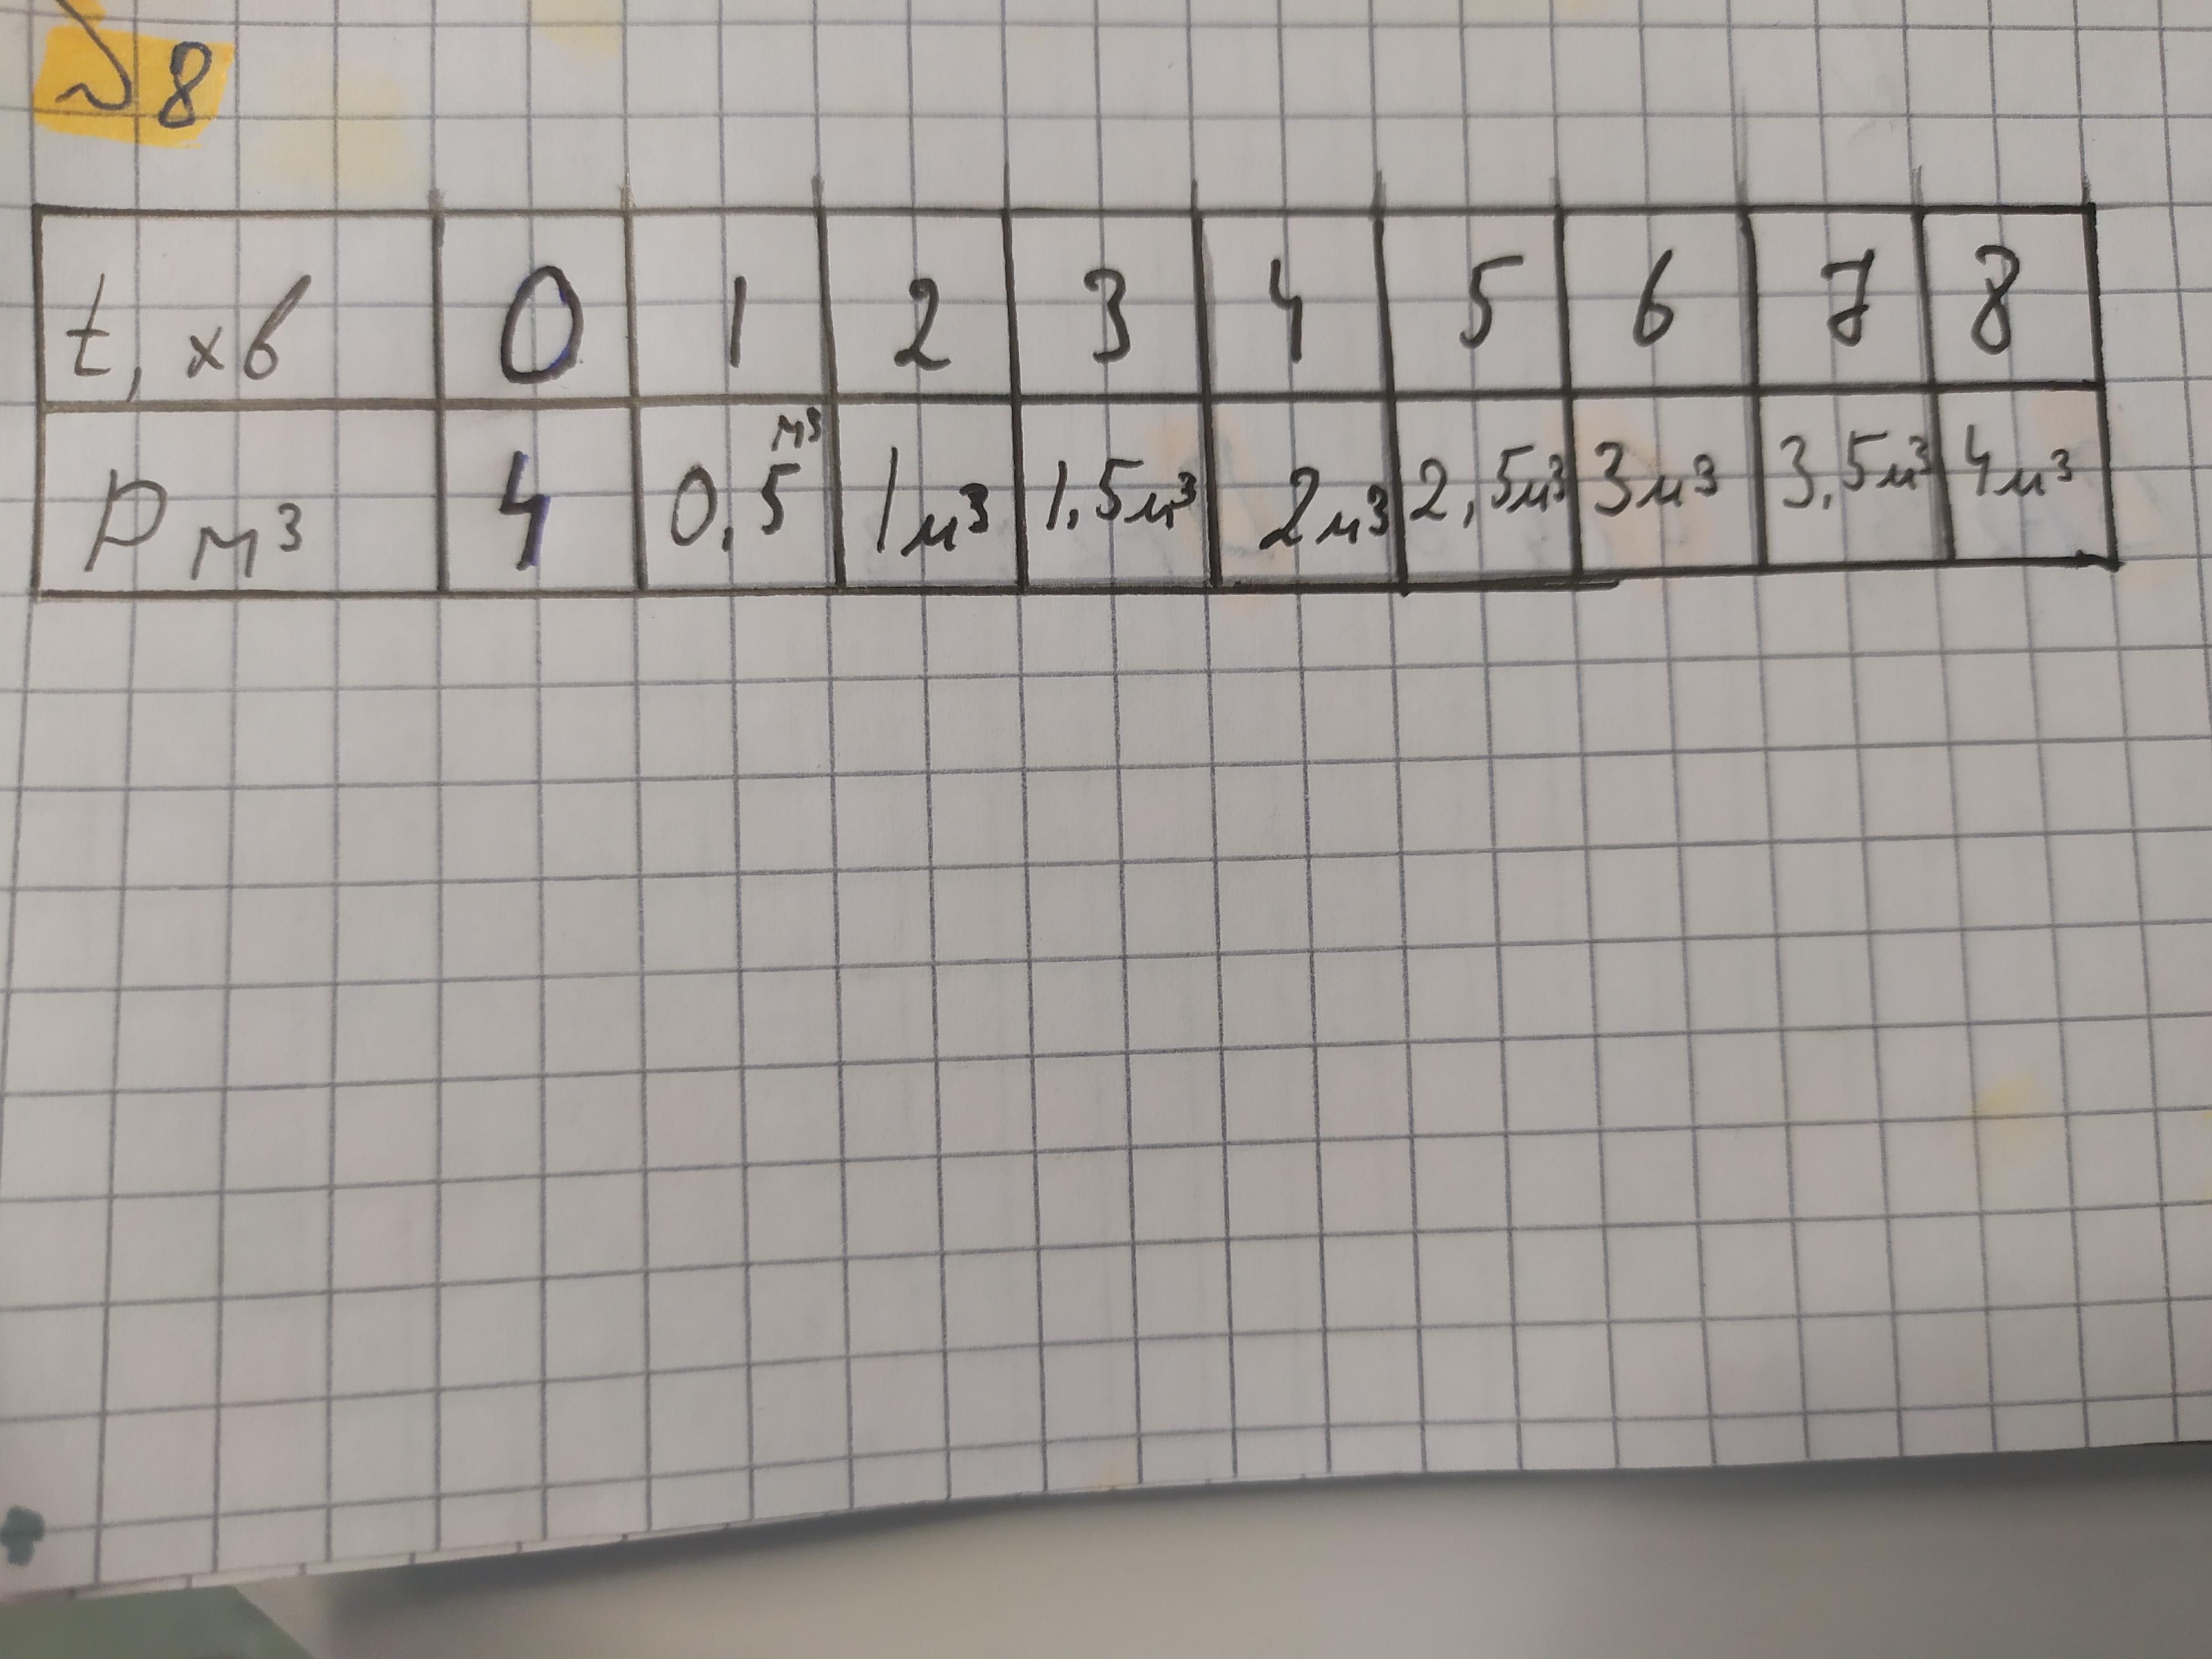 №8
t, хв 0 1 2 3 4 5 6 7 8
P м³ 4 0,5 м³ 1м³ 1,5м³ 2м³ 2,5м³ 3м³ 3,5м³ 4м³